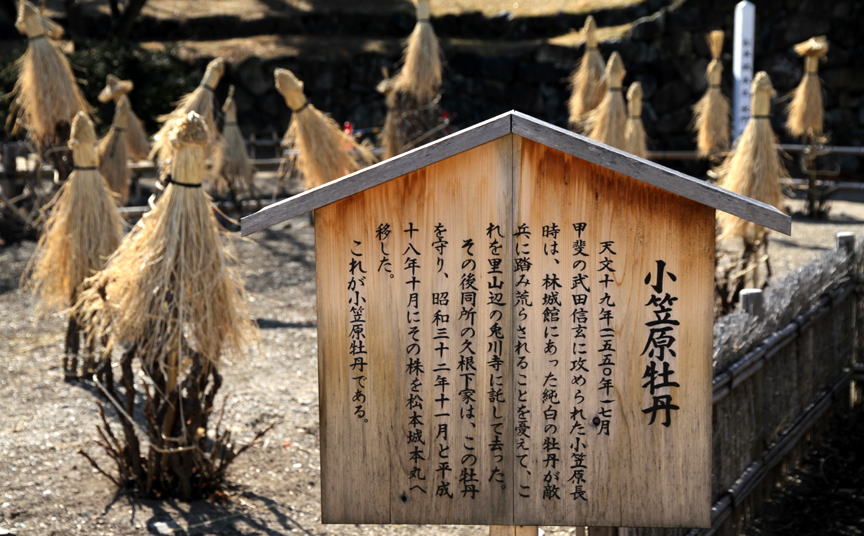 小笠原牡丹
天文十九年(一五五〇年)七月
甲斐の武田信玄に攻められた小笠原長
時は、林城館にあった純白の牡丹が敵
兵に踏み荒らされることを憂えて、こ
れを里山辺の兎川寺に託して去った。
その後同所の久根下家は、この牡丹
を守り、昭和三十二年十一月と平成
十八年十月にその株を松本城本丸へ
移した。
これが小笠原牡丹である。